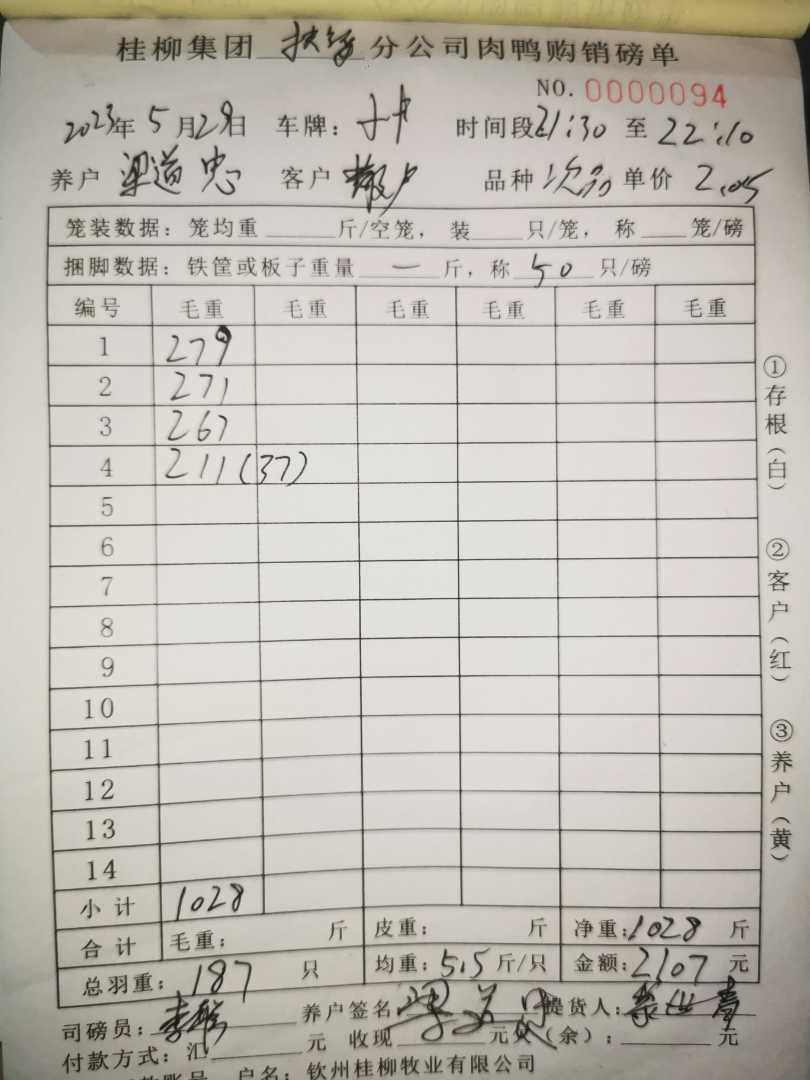 桂柳集团 扶绥 分公司肉鸭购销磅单
NO. 0000094
2023年 5 月29日 车牌: 时间段21:30 至 22:10
养户 梁道忠 客户 散户 品种 次品 单价 2.05
笼装数据: 笼均重 斤/空笼, 装 只/笼, 称 笼/磅
捆脚数据: 铁筐或板子重量 一 斤, 称 50 只/磅
编号 毛重 毛重 毛重 毛重 毛重 毛重
1 279
2 271
3 267
4 211(37)
5
6
7
8
9
10
11
12
13
14
小计 1028
合计 毛重: 斤 皮重: 斤 净重:1028 斤
总羽重: 187 只 均重: 5.5 斤/只 金额: 2107 元
司磅员: 养户签名 提货人:
付款方式: 汇 元 收现 元 欠(余): 元
户名: 钦州桂柳牧业有限公司
①存根(白) ②客户(红) ③养户(黄)